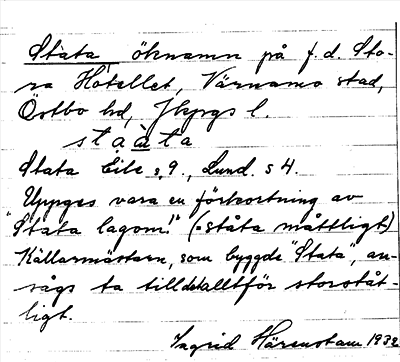 Ståta öknamn på f.d. Sto-
ra Hotellet, Värnamo stad,
Östbo hd, Jkpgs l.
ståàta
Stata Eile s, 9., Lund. s 4.
Uppges vara en förkortning av
"Ståta lagom!" (=ståta måttligt)
Källarmästaren, som byggde "Ståta", an-
sågs ta till det alltför storståt-
ligt.
Ingrid Härenstam 1932